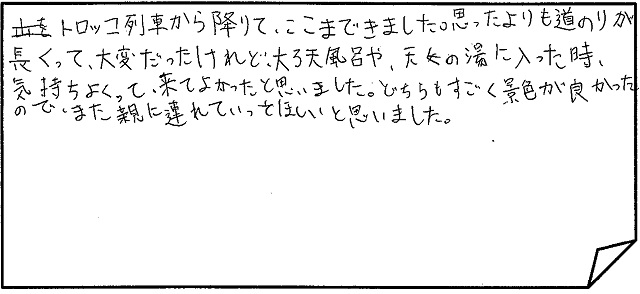 トロッコ列車から降りて、ここまできました。思ったよりも道のりが
長くって、大変だったけれど、大ろ天風呂や、天女の湯に入った時、
気持ちよくって、来てよかったと思いました。どちらもすごく景色が良かった
ので、また親に連れていってほしいと思いました。